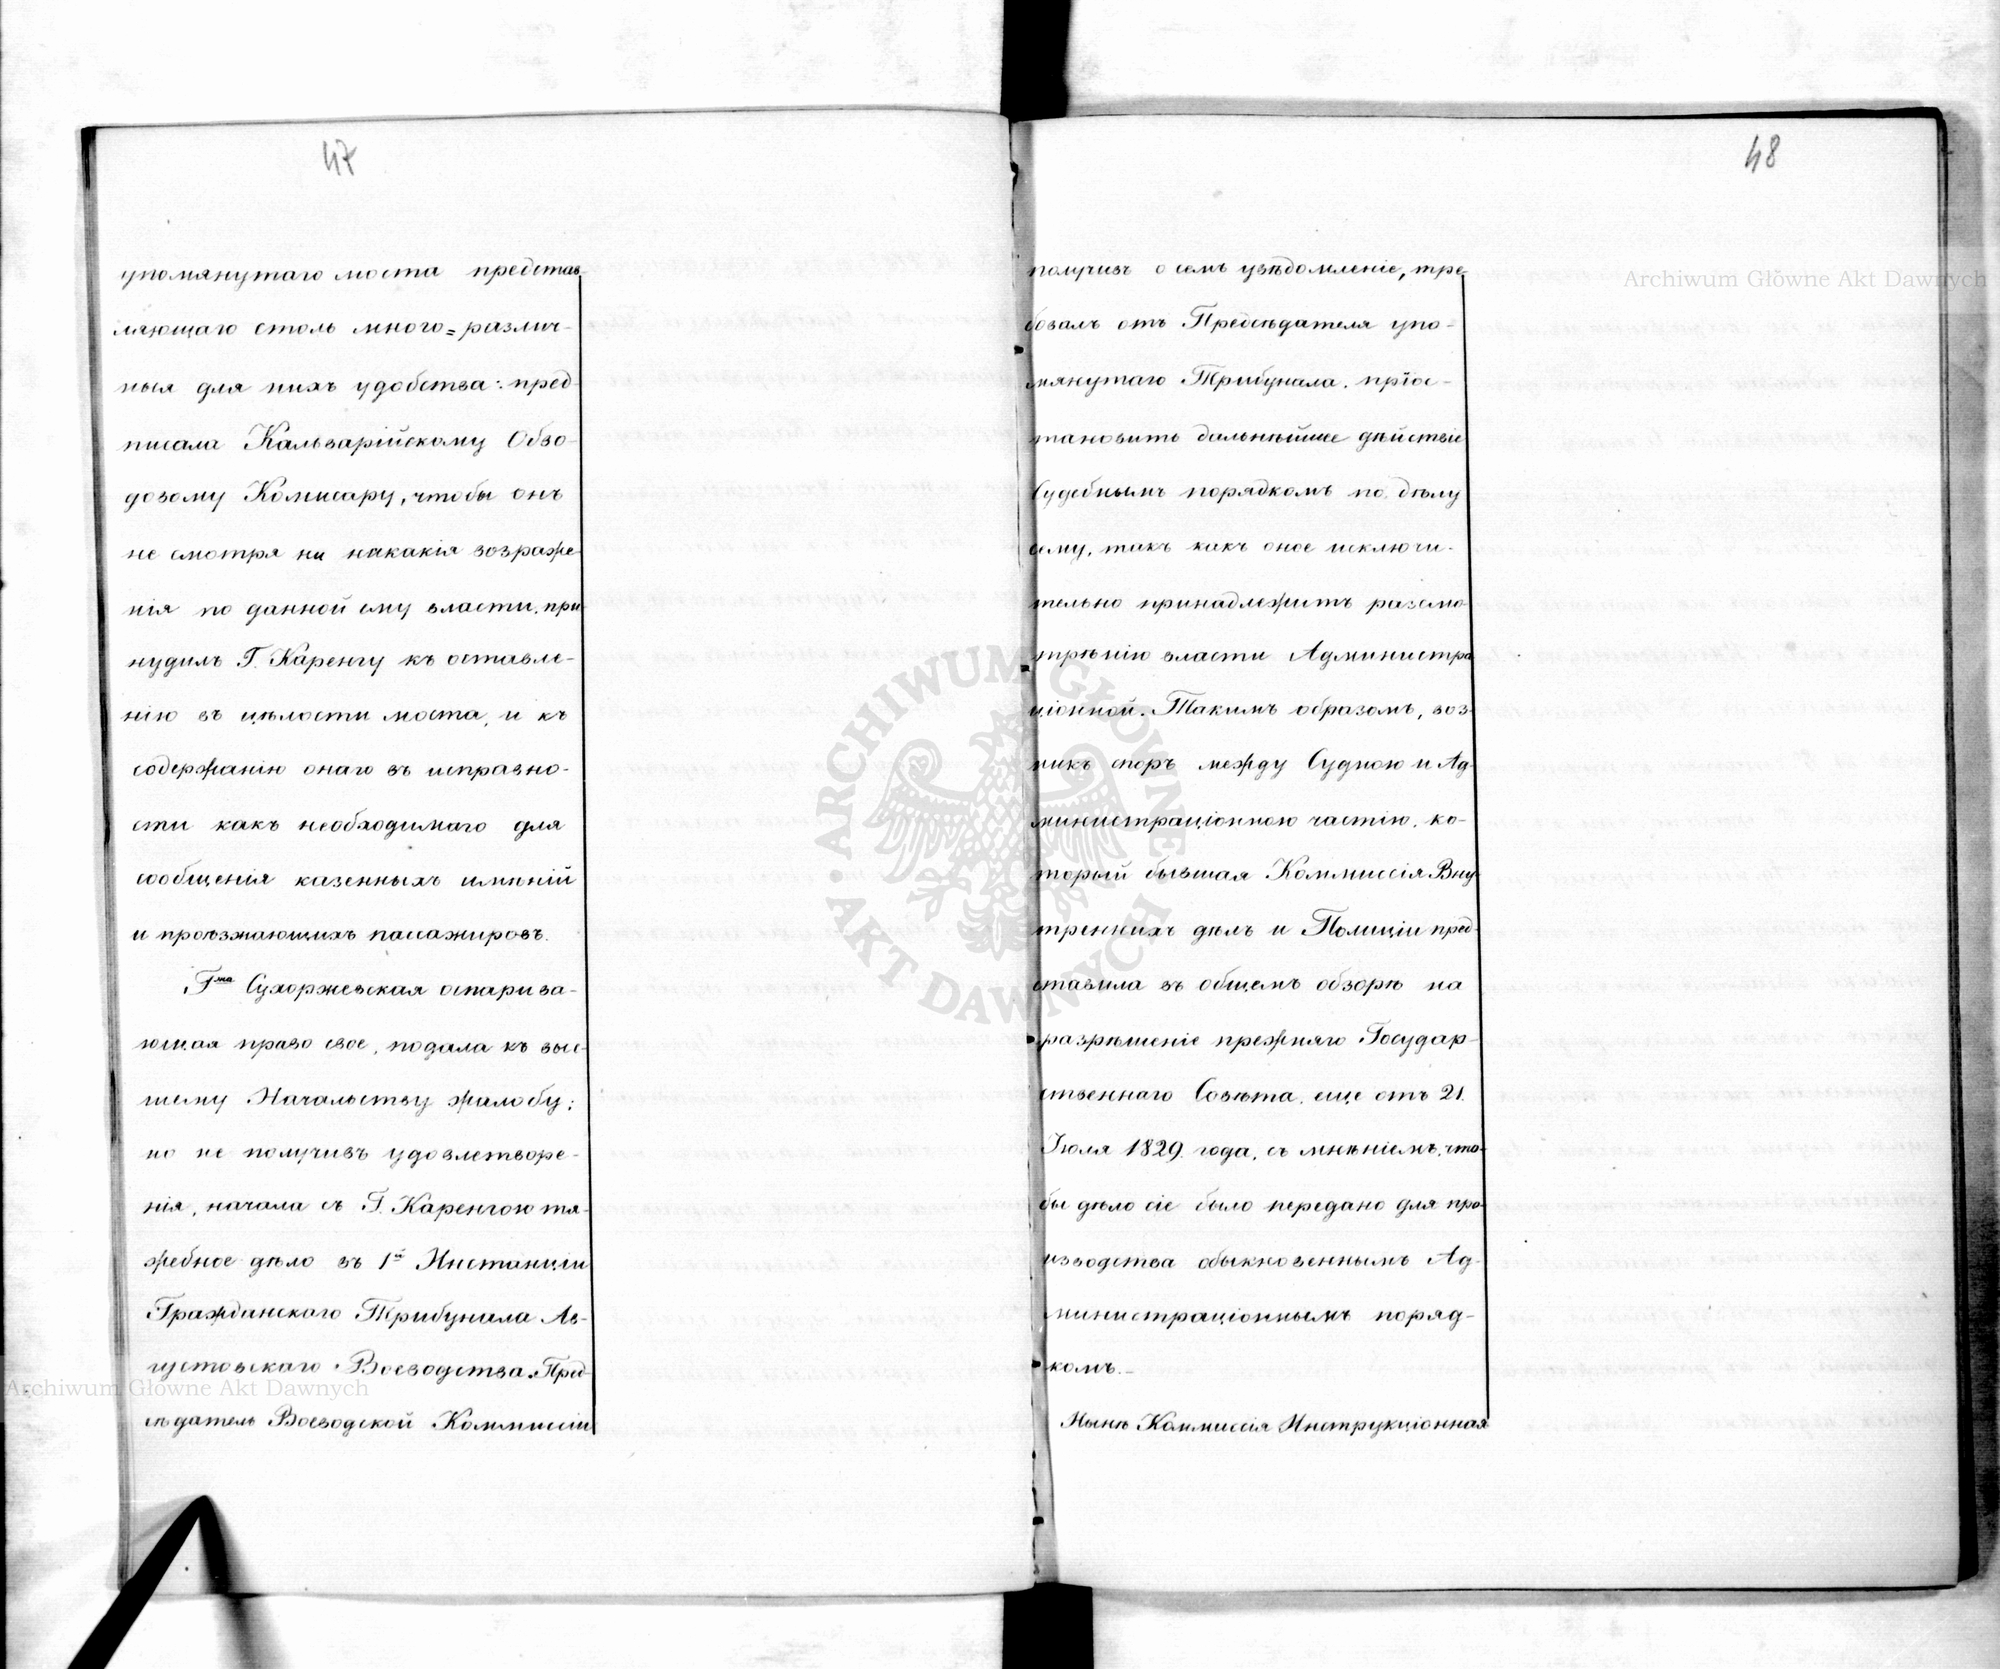 47
упомянутаго моста представ-
ляющаго столь много=различ-
ныя для нихъ удобства: пред-
писала Кальварійскому Обво-
довому Комисару, чтобы онъ
не смотря ни накакія возраже-
нія по данной ему власти, при-
нудилъ Г. Каренгу къ оставле-
нію въ цѣлости моста, и къ
содержанію онаго въ исправно-
сти какъ необходимаго для
сообщенія казенныхъ имѣній
и проѣзжающихъ пасажировъ.
Гжа Сухоржевская оспарива-
ющая право свое, подала къ выс-
шему Начальству жалобу;
но не получивъ удовлетворе-
нія, начала съ Г. Каренгою тя-
жебное дѣло въ 1й Инстанціи
Гражданскаго Трибунала Ав-
густовскаго Воеводства. Пред-
сѣдатель Воеводской Коммиссіи
48
получивъ о семъ увѣдомленіе, тре-
бовалъ отъ Предсѣдателя упо-
мянутаго Трибунала, пріос-
тановить дальнѣйшее дѣйствіе
Судебнымъ порядкомъ по дѣлу
сему, такъ какъ оное исключи-
тельно принадлежитъ разсмо-
трѣнію власти Администра-
ціонной. Такимъ образомъ, воз-
никъ споръ между Судною и Ад-
министраціонною частію, ко-
торый бывшая Коммиссія Вну-
треннихъ дѣлъ и Полиціи пред-
ставила въ общемъ обзорѣ на
разрѣшеніе прежняго Государ-
ственнаго Совѣта, еще отъ 21.
Іюля 1829. года, съ мнѣніемъ, что-
бы дѣло сіе было передано для про-
изводства обыкновеннымъ Ад-
министраціоннымъ поряд-
комъ.-
Нынѣ Коммиссія Инструкціонная
Archiwum Główne Akt Dawnych
Archiwum Główne Akt Dawnych
ARCHIWUM GŁÓWNE
AKT DAWNYCH